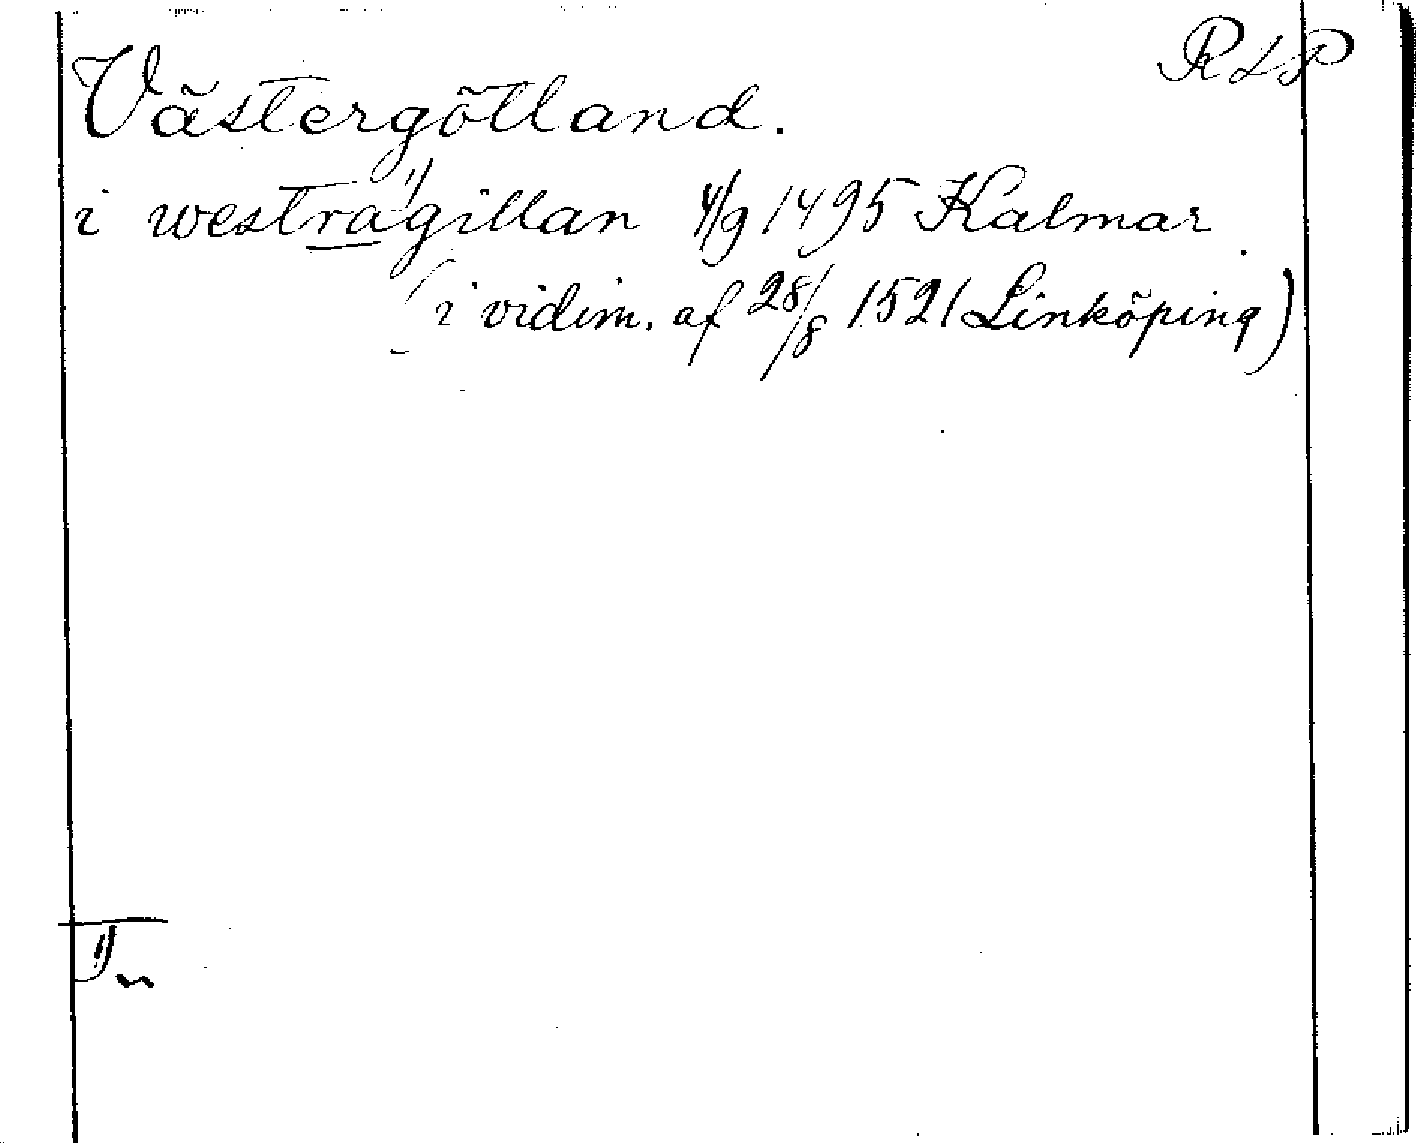 RLP
Västergötland.
i westra¹⁾gillan 4/9 1495 Kalmar.
(i vidim. af 28/8 1521 Linköping)
1) ~